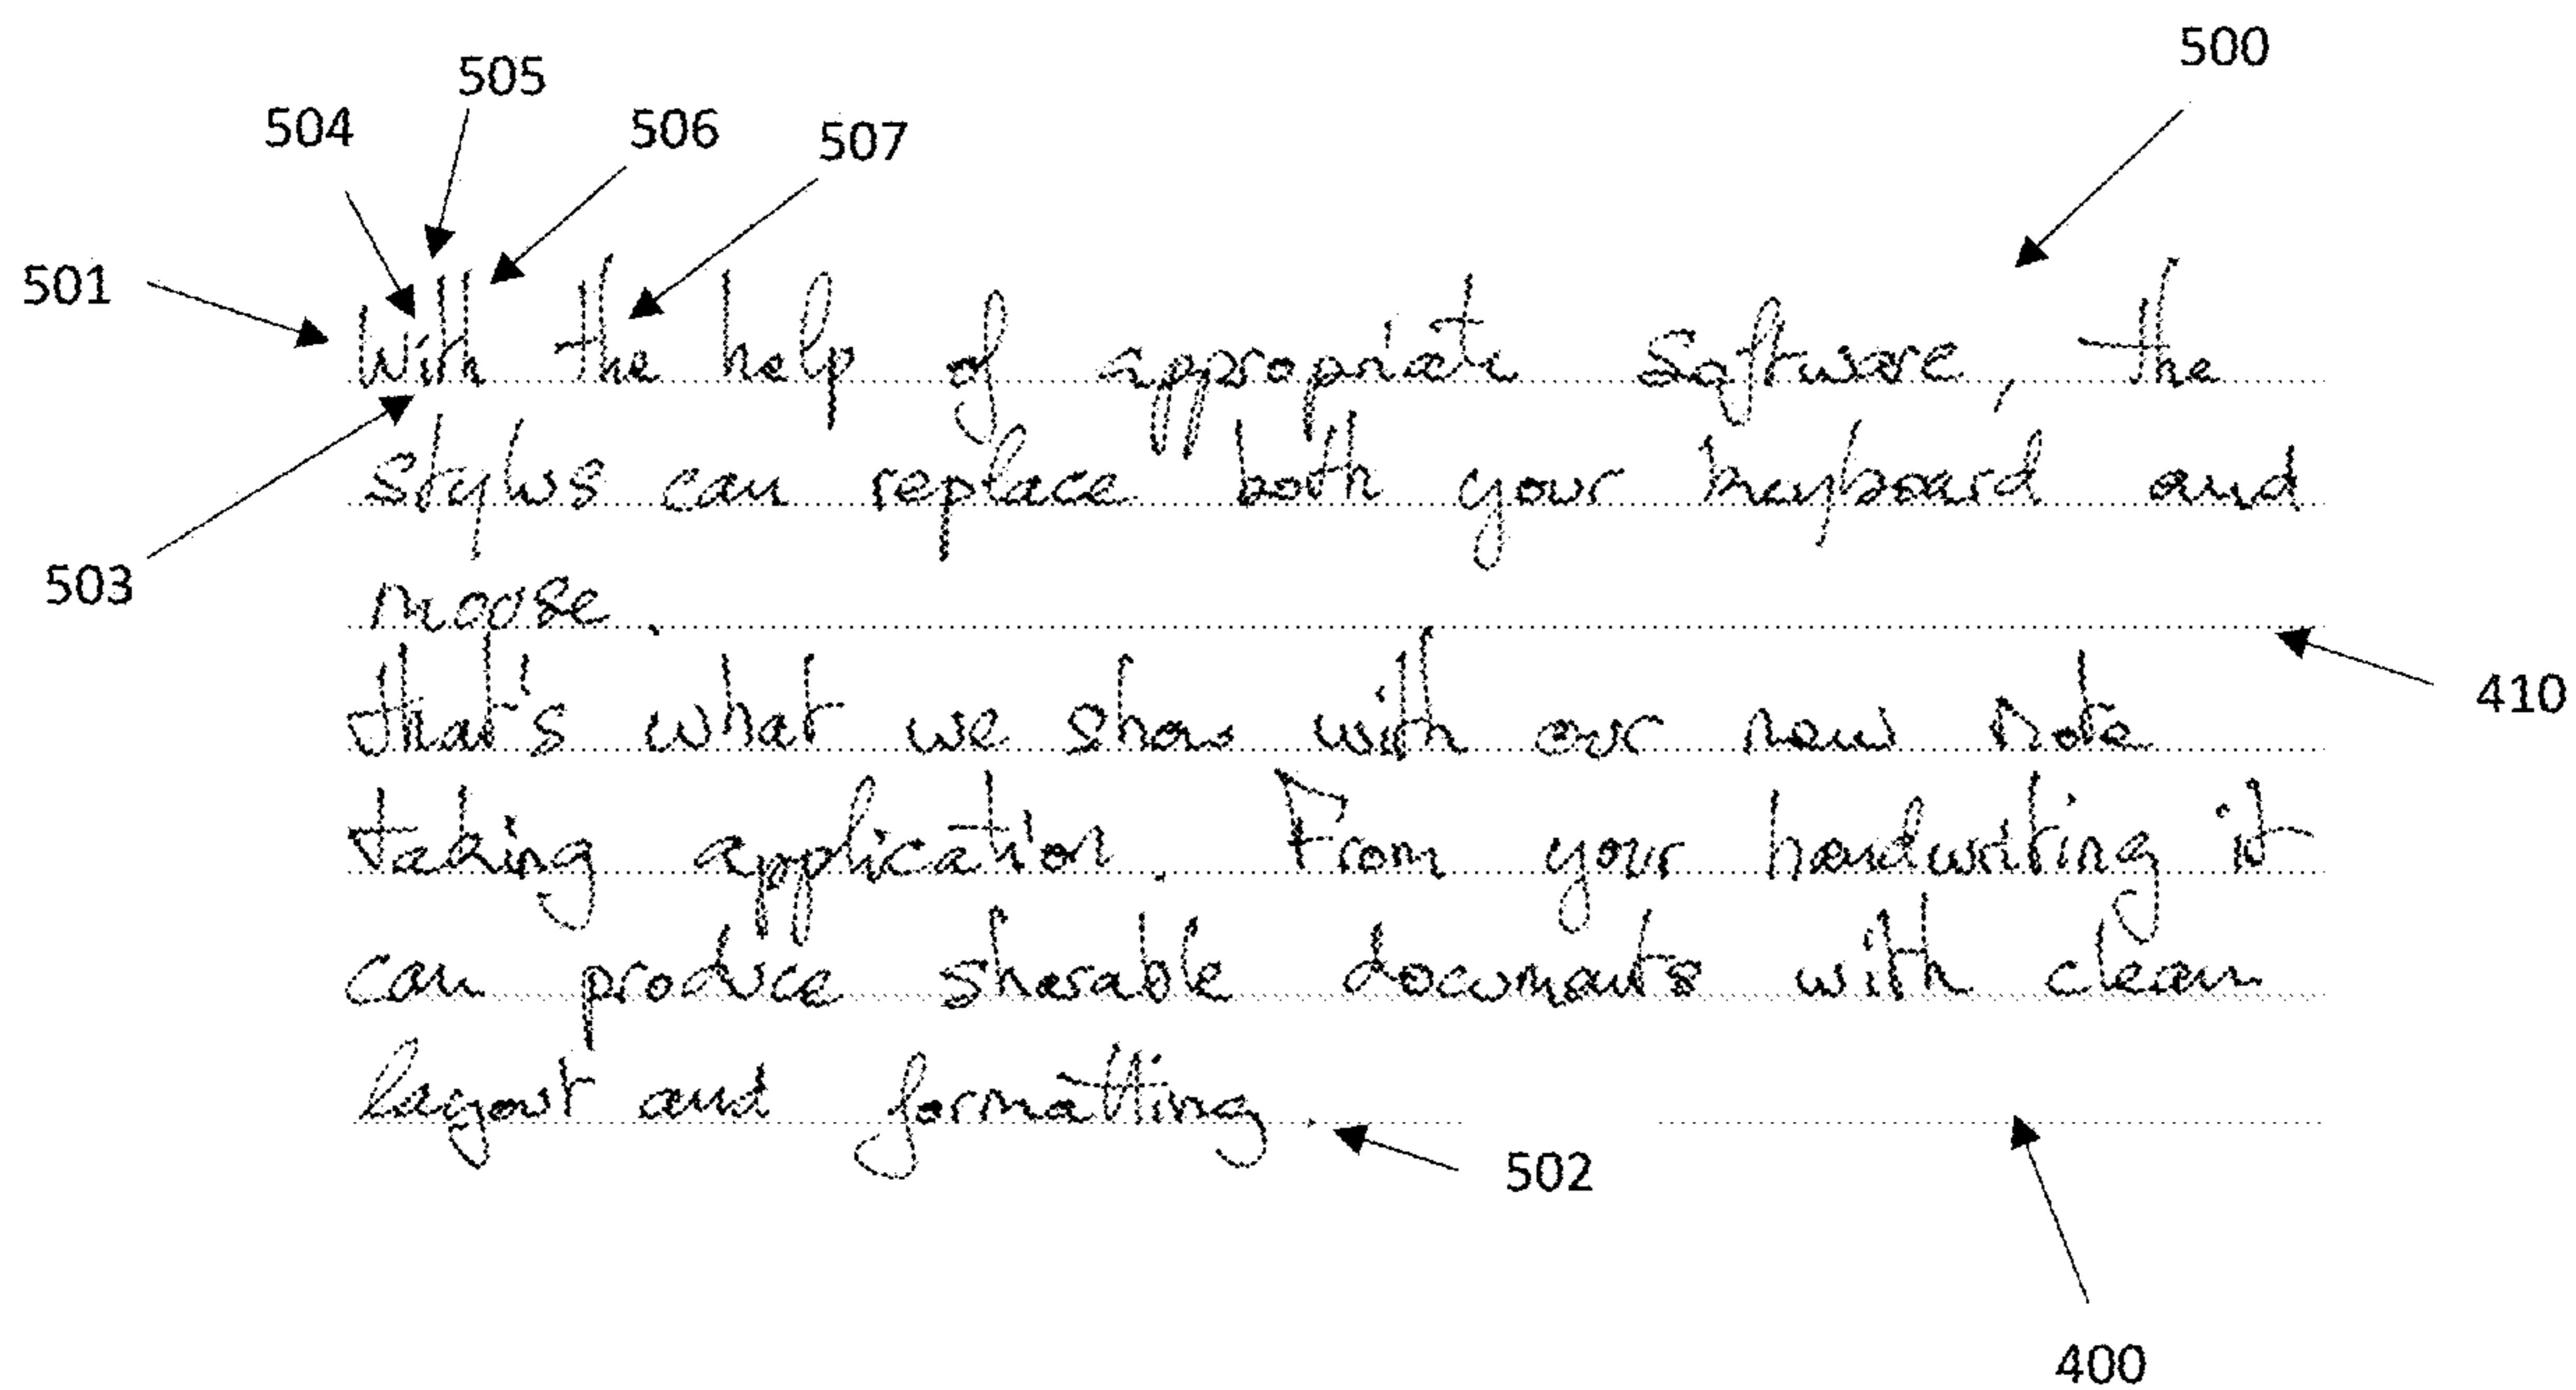 500
505
504 506 507
501
With the help of appropriate Software, the
503
stylus can replace both your keyboard and
moose.
410
that's what we show with our new note
taking application. From your handwriting it
can produce sharable documents with clean
layout and formatting.
502
400